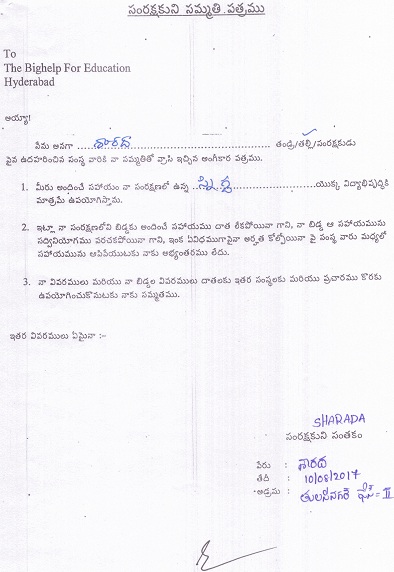 సంరక్షకుని సమ్మతి పత్రము
To
The Bighelp For Education
Hyderabad
అయ్యా!
నేను అనగా శారద తండ్రి/తల్లి/సంరక్షకుడు
పైన ఉదహరించిన సంస్థ వారికి నా సమ్మతితో వ్రాసి ఇచ్చిన అంగీకార పత్రము.
1. మీరు అందించే సహాయం నా సంరక్షణలో ఉన్న యొక్క విద్యాభివృద్ధికి
మాత్రమే ఉపయోగిస్తాము.
2. ఇట్లా నా సంరక్షణలోని బిడ్డకు అందించే సహాయము దాత లేకపోయినా గాని, నా బిడ్డ ఆ సహాయమును
సద్వినియోగము పరచకపోయినా గాని, ఇంక ఏవిధముగానైనా అర్హత కోల్పోయినా పై సంస్థ వారు మధ్యలో
సహాయమును ఆపివేయుటకు నాకు అభ్యంతరము లేదు.
3. నా వివరములు మరియు నా బిడ్డల వివరములు దాతలకు ఇతర సంస్థలకు మరియు ప్రచారము కొరకు
ఉపయోగించుకొనుటకు నాకు సమ్మతము.
ఇతర వివరములు ఏమైనా :-
SHARADA
సంరక్షకుని సంతకం
పేరు : శారద
తేదీ : 10/08/2017
అడ్రసు : తులసీనగర్ ఫేస్ = II